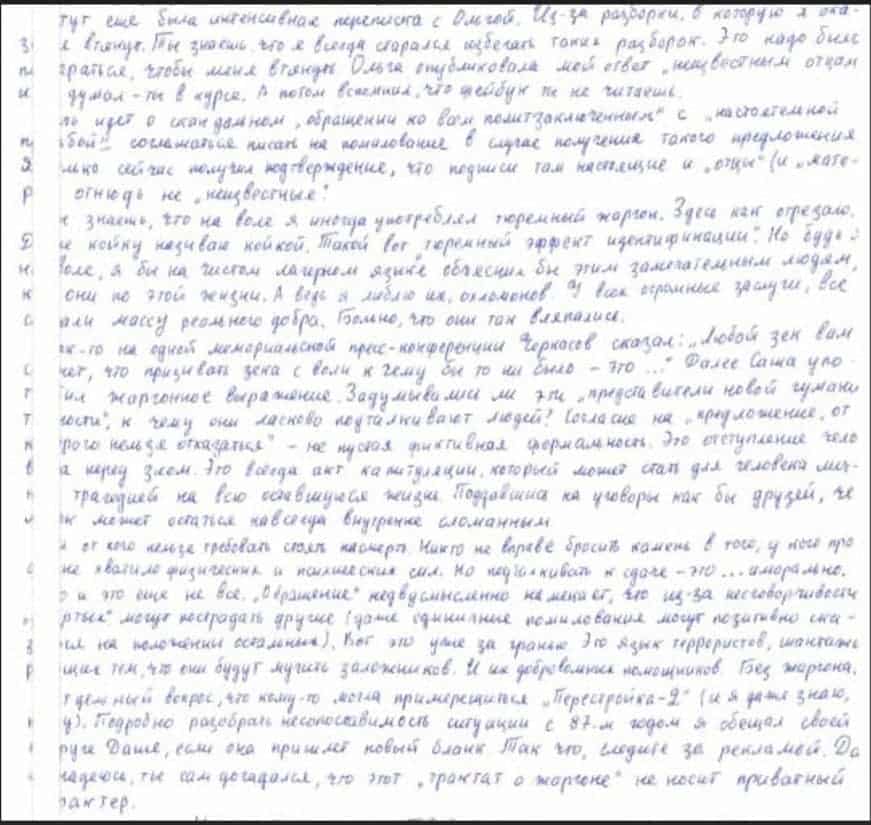 тут еще была интенсивная переписка с Ольгой. Из-за разборки, в которую я ока-
втянут. Ты знаешь, что я всегда старался избегать таких разборок. Это надо было
раться, чтобы меня втянуть. Ольга опубликовала мой ответ „неизвестным отцам
думал - ты в курсе. А потом вспомнил, что фейсбук ты не читаешь.
идет о скандальном „обращении ко всем политзаключенным" с „настоятельной
бой" соглашаться писать на помилование в случае получения такого предложения
лько сейчас получил подтверждение, что подписи там настоящие и „отцы" (и „мате-
р отнюдь не „неизвестные".
знаешь, что на воле я иногда употреблял тюремный жаргон. Здесь как отрезало.
койку называю койкой. Такой вот „тюремный эффект идентификации". Но будь
воле, я бы на чистом лагерном языке объяснил бы этим замечательным людям,
к они по этой жизни. А ведь я люблю их, охламонов. У всех огромные заслуги, все
али массу реального добра. Больно, что они так вляпались.
ак-то на одной мемориальской пресс-конференции Черкасов сказал: „Любой зек вам
жет, что призывать зека с воли к чему бы то ни было - это ..." Далее Саша упо-
ил жаргонное выражение. Задумывались ли эти „представители новой гуманн
ности", к чему они ласково подталкивают людей? Согласие на „предложение, от
рого нельзя отказаться" - не пустая фиктивная формальность. Это отступление чело
а перед злом. Это всегда акт капитуляции, который может стать для человека лич-
трагедией на всю оставшуюся жизнь. Поддавшись на уговоры как бы друзей, че
к может остаться навсегда внутренне сломанным.
от кого нельзя требовать стоять насмерть. Никто не вправе бросить камень в того, у кого про
не хватило физических и психических сил. Но подталкивать к сдаче - это ... аморально.
о и это еще не все. „Обращение" недвусмысленно намекает, что из-за несговорчивости
ртых" могут пострадать другие (даже единичные помилования могут позитивно ска-
ся на положении остальных). Вот это уже за гранью. Это язык террористов, шантажи
щих тем, что они будут мучить заложников. И их добровольных помощников. Без жаргона.
тдельный вопрос, что кому-то могла примерещиться „Перестройка-2" (и я даже знаю,
у). Подробно разобрать несопоставимость ситуации с 87-м годом я обещал своей
руге Даше, если она пришлет новый бланк. Так что, следите за рекламой. Да
надеюсь, ты сам догадался, что этот „трактат о жаргоне" не носит приватный
рактер.